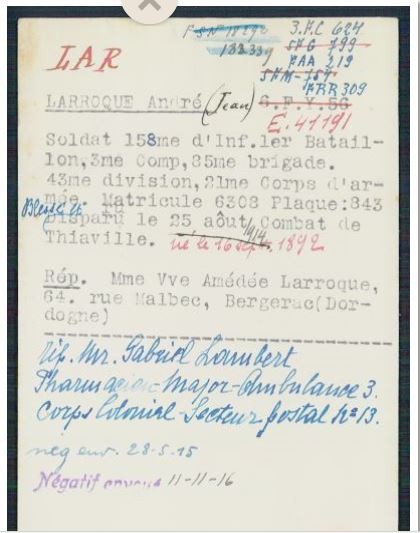 FSN 18292 3.F.C 624
13339 SFG 799
LAR FAA 219
SFM-754
FRR 309
LARROQUE André (Jean) 6.F.Y.56
E.41191
Soldat 158me d'Inf.1er Batail-
lon,3me Comp,85me brigade.
43me division,21me Corps d'ar-
mée. Matricule 6303 Plaque:843
Blessé et Disparu le 25 août 1914 Combat de
Thiaville. né le 16 sept. 1892
Rép. Mme Vve Amédée Larroque,
64. rue Malbec, Bergerac(Dor-
dogne)
rép. Mr. Gabriel Lambert
Pharmacien-Major-Ambulance 3.
Corps Colonial-Secteur postal N° 13.
nég env. 28-5-15
Négatif envoyé 11-11-16